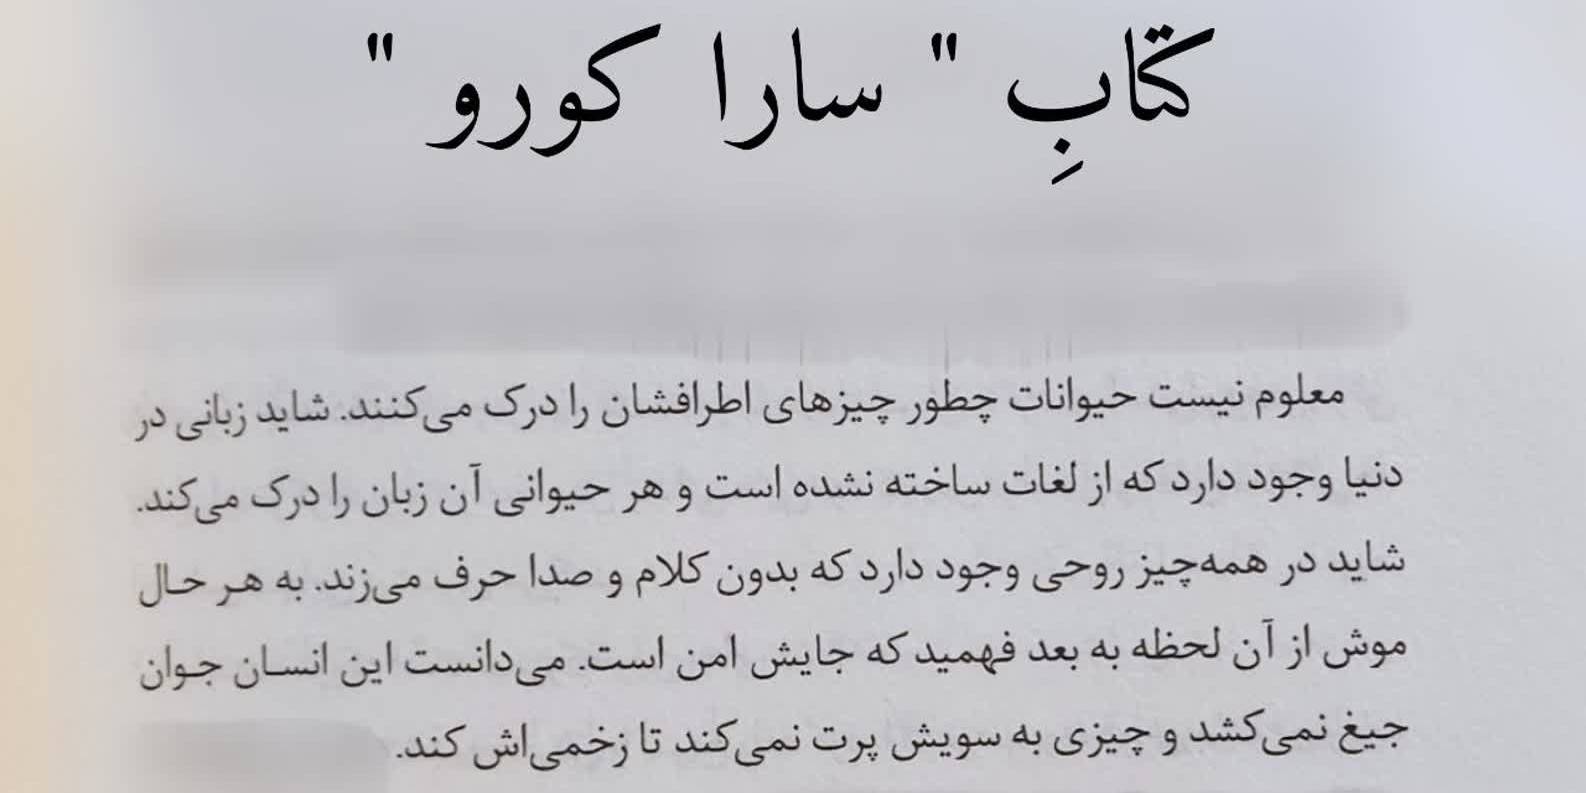 کتابِ " سارا کورو "
معلوم نیست حیوانات چطور چیزهای اطرافشان را درک می‌کنند. شاید زبانی در
دنیا وجود دارد که از لغات ساخته نشده است و هر حیوانی آن زبان را درک می‌کند.
شاید در همه‌چیز روحی وجود دارد که بدون کلام و صدا حرف می‌زند. به هر حال
موش از آن لحظه به بعد فهمید که جایش امن است. می‌دانست این انسان جوان
جیغ نمی‌کشد و چیزی به سویش پرت نمی‌کند تا زخمی‌اش کند.